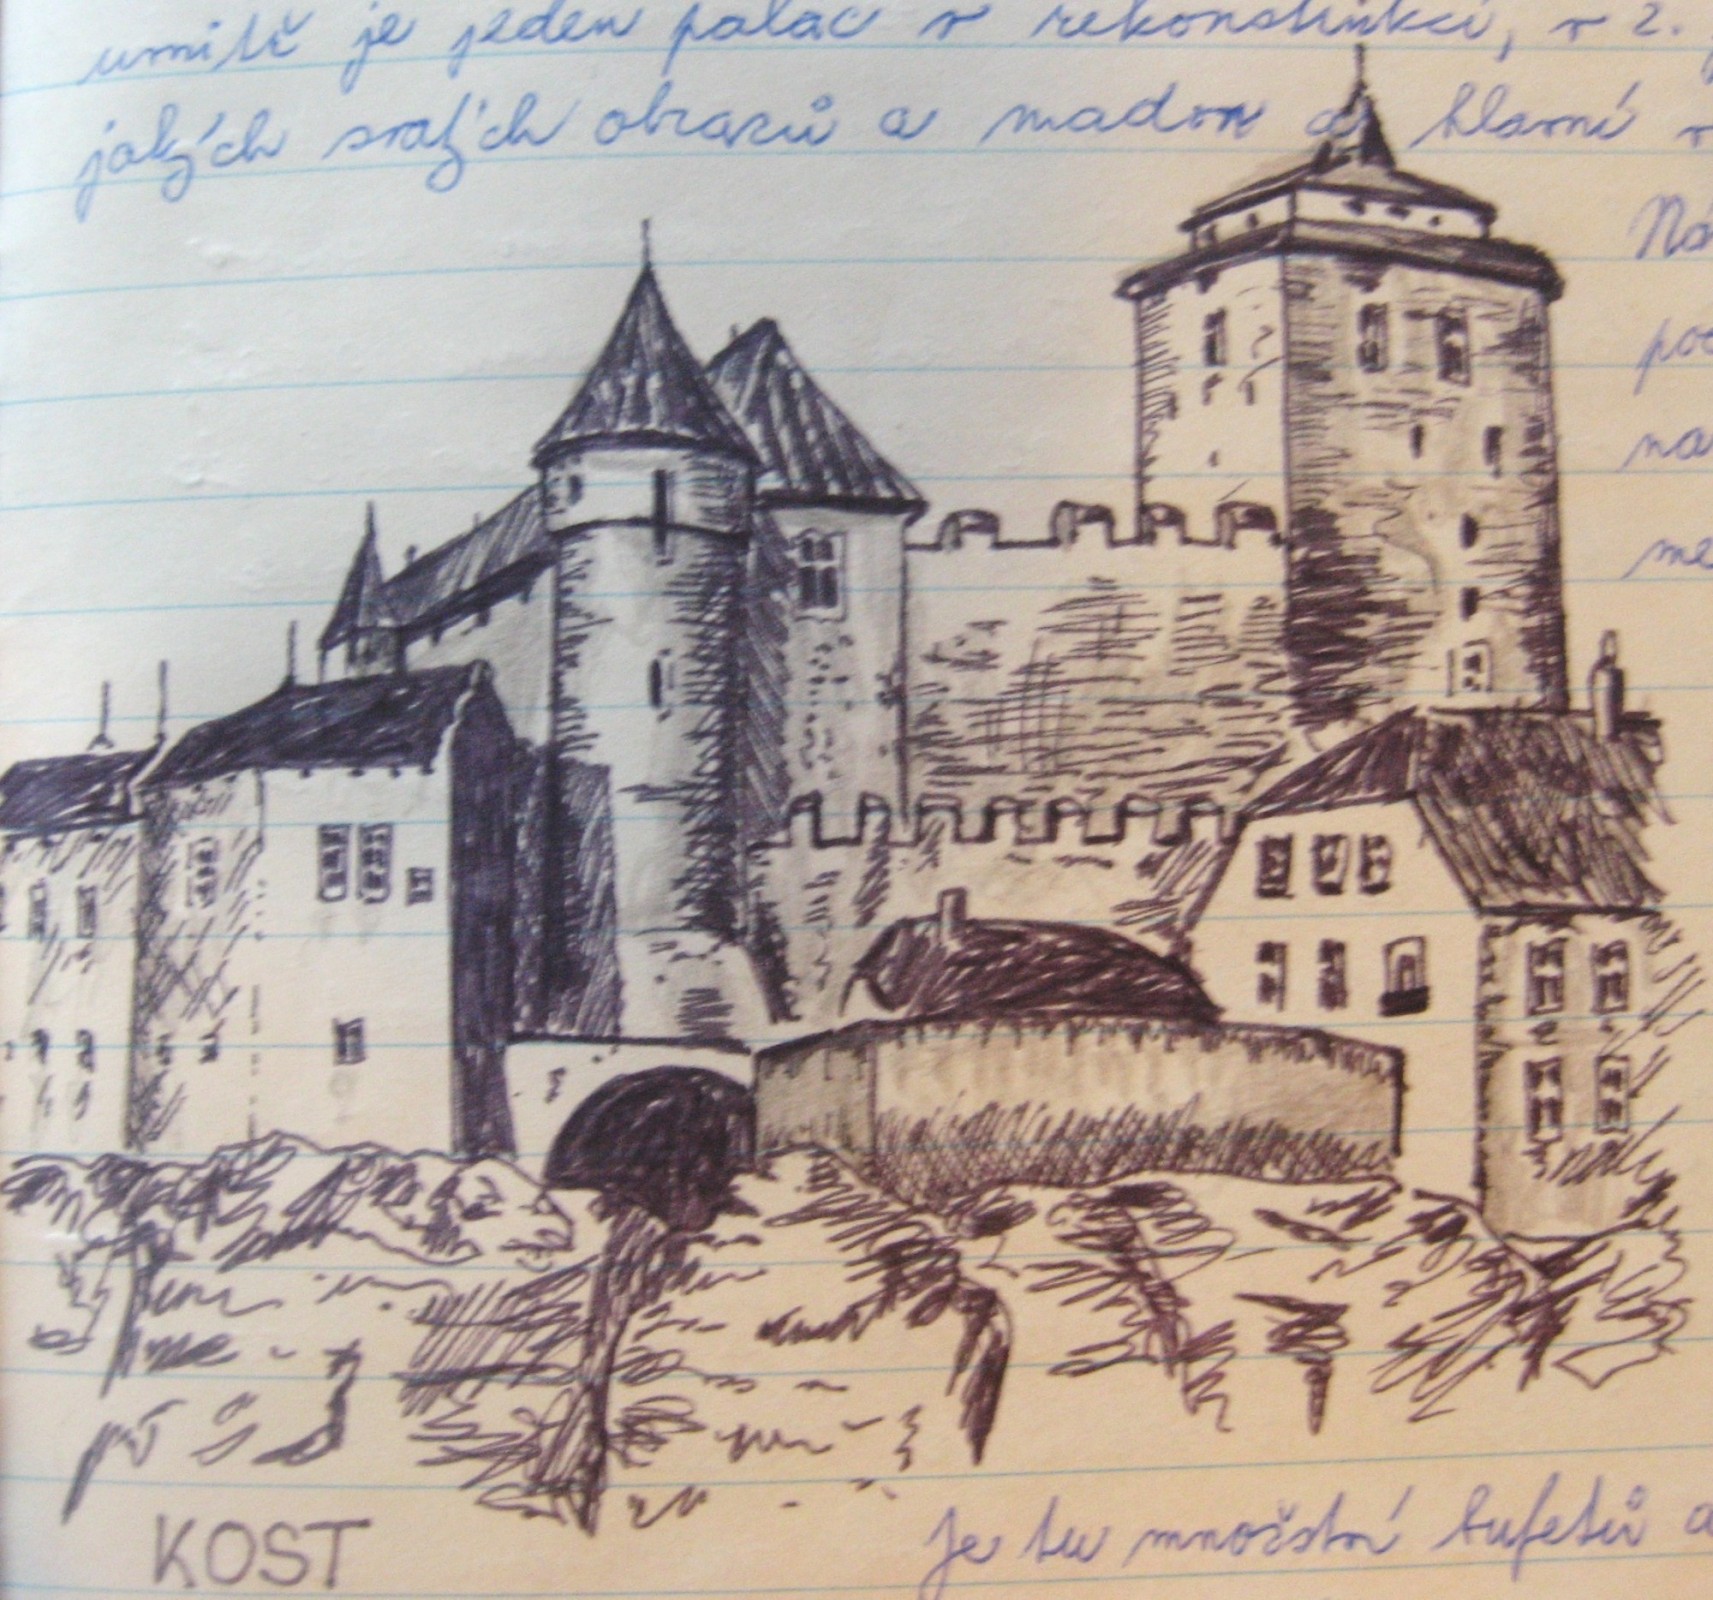 umitř je jeden palác v rekonstrukci, v 2.
jakých svatých obrazů a madon a hlavní
Ná
poc
na
me
KOST
je tu množství bufetů a